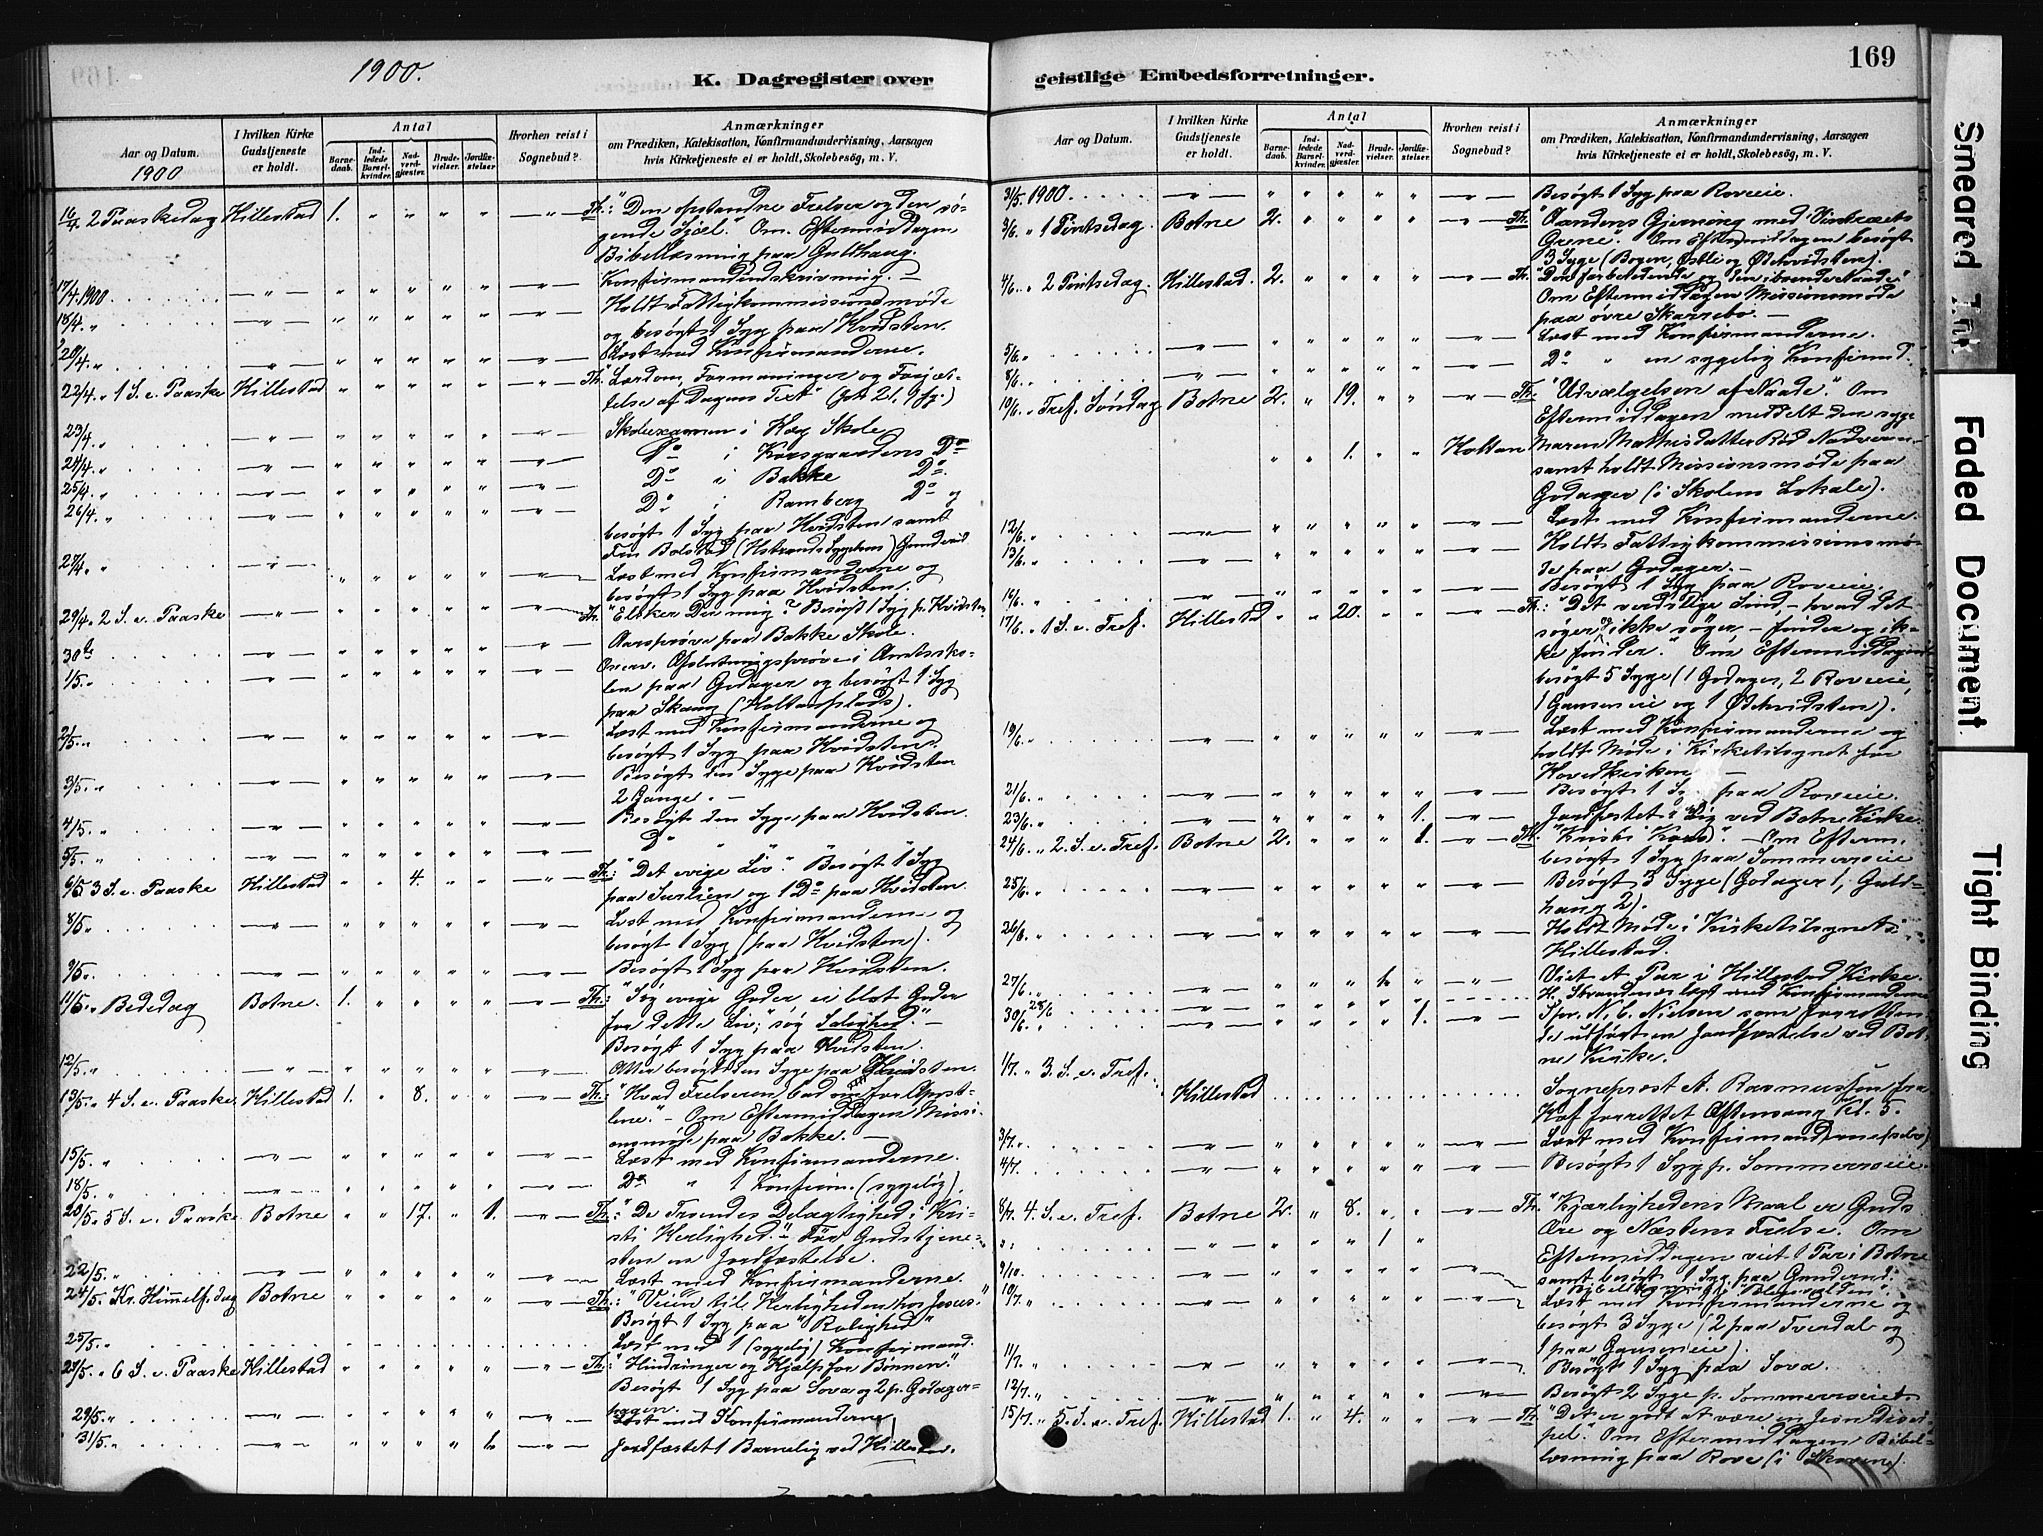 1900.
K. Dagregister over geistlige Embedsforretninger.
169
Aar og Datum.
1900
I hvilken Kirke Gudstjeneste er holdt.
Antal
Barnedaab.
Indledede Barselkvinder.
Nadverdgjæster.
Brudevielser.
Jordfæstelser
Hvorhen reist i Sognebud?
Anmærkninger
om Prædiken, Katekisation, Konfirmandundervisning, Aarsagen
hvis Kirketjeneste ei er holdt, Skolebesøg, m. V.
16/4 2 Paaskedag Hillestad 1. " " " " — " — Th: "Den opstandne Frelser og den sø-
gende Sjæl." Om Eftermiddagen
Bibellæsning paa Guldhaug.
17/4 1900 — " — " " " " " — " — Konfirmandindskrivning. —
18/4 " — " — " " " " " — " — Holdt Fattigkommissionsmøde
og besøgt 1 Syg paa Hvidsten.
20/4 " — " — " " " " " — " — Læst med Konfirmanderne.
22/4 " 1 S. e. Paaske Hillestad " " " " " — " — Th: "Lærdom, Formaninger og Forjæt-
telse af Dagens Text"
23/4 " — " — " " " " " — " — Skoleexamen i Skole
24/4 " — " — " " " " " — " — Do i Korsgaardens Do
25/4 " — " — " " " " " — " — Do " Bakke Do
26/4 " — " — " " " " " — " — Do i Ramberg Do og
besøgt 1 Syg paa Hvidsten samt
27/4 " — " — " " " " " — " — Læst med Konfirmanderne og
besøgt 1 Syg paa Hvidsten.
29/4 2 S. e. Paaske — " — " " " " " — " — Th: "Elsker Du mig?" Besøgt 1 Syg p. Hvidsten
30te — " — " " " " " — " — Aarsprøve paa Bakke Skole.
1/5 " — " — " " " " " — " — Overv. Afslutningsprøve i Amtssko-
len paa Godager og besøgt 1 Syg
paa Skaug (Holtanplads).
2/5 " — " — " " " " " — " — Læst med Konfirmanderne og
besøgt 1 Syg paa Hvidsten.
3/5 " — " — " " " " " — " — Besøgt den Syge paa Hvidsten
2 Gange. —
4/5 " — " — " " " " " — " — Besøgt den Syge paa Hvidsten.
5/5 " — " — " " " " " — " — Do " " "
6/5 3 S. e. Paaske Hillestad " " 4. " " — " — Th: "Det evige Liv." Besøgt 1 Syg
paa og 1 Do paa Hvidsten.
8/5 " — " — " " " " " — " — Læst med Konfirmanderne og
besøgt 1 Syg (paa Hvidsten).
9/5 " — " — " " " " " — " — Besøgt 1 Syg paa Hvidsten.
11/5 " Bededag Botne. 1. " " " " — " — Th: "Søg evige Goder, ei blot Goder
for dette Liv; søg Salighed." —
Besøgt 1 Syg paa Hvidsten.
12/5 " — " — " " " " " — " — Atter besøgt den Syge paa Hvidsten.
13/5 " 4 S. e. Paaske Hillestad 1. " 8. " " — " — Th: "Hvad Frelseren bad om for Apost-
lene." — Om Eftermiddagen Missi-
onsmøde paa Bakke. —
15/5 " — " — " " " " " — " — Læst med Konfirmanderne.
18/5 " — " — " " " " " — " — Do " 1 Konfirm. (sygelig)
20/5 " 5 S. e. Paaske Botne " " 17. " 1. — " — Th: "De Troendes Delagtighed i Kri-
sti Herlighed." Før Gudstjene-
sten en Jordfæstelse.
22/5 " — " — " " " " " — " — Læst med Konfirmanderne.
24/5 " Kr. Himmelf. dag Botne " " " " " — " — Th: "Veien til Herligheden hos Jesus."
Besøgt 1 Syg paa "Rolighed"
25/5 " Læst med 1 (sygelig) Konfirmand.
27/5 " 6 S. e. Paaske Hillestad " " " " " — " — Th: "Hindringer og Hjælp for Bønnen."
Besøgt 1 Syg paa Sova og 2 p. Godager-
hagen.
29/5 " — " — " " " " " — " — Læst med Konfirmanderne
31/5 " — " — " " " " 1 — " — Jordfæstet 1 Barnelig ved Hillestad.
Aar og Datum.
I hvilken Kirke Gudstjeneste er holdt.
Antal
Barnedaab.
Indledede Barselkvinder.
Nadverdgjæster.
Brudevielser.
Jordfæstelser
Hvorhen reist i Sognebud?
Anmærkninger
om Prædiken, Katekisation, Konfirmandundervisning, Aarsagen
hvis Kirketjeneste ei er holdt, Skolebesøg, m. V.
31/5 1900 — " — " " " " " — " — Besøgt 1 Syg paa Roveie.
3/6 " 1 Pintsedag. Botne 2. " " " " — " — Th: "Aandens Gjerning med Vintræets
Grene." Om Eftermiddagen besøgt
3 Syge (Bogen, Østli og Øhvidsten).
4/6 " 2 Pintsedag. Hillestad. 2. " " " " — " — Th: "Den forberedende og den iboende Naade"
Om Eftermiddagen Missionsmøde
paa øvre Skarrebo. —
5/6 " — " — " " " " " — " — Læst med Konfirmanderne.
8/6 " — " — " " " " " — " — Do " en sygelig Konfirmd.
10/6 " Tref. Søndag Botne 2. " 19. " " — " — Th: "Udvælgelsen af Naade." Om
Eftermiddagen meddelt den syge
" " 1. " " Holtan Maren Mathisdatter Rød Nadveren
samt holdt Missionsmøde paa
Godager (i Skolens Lokale).
12/6 " — " — " " " " " — " — Læst med Konfirmanderne.
13/6 " — " — " " " " " — " — Holdt Fattigkommissionsmø-
de paa Godager. —
16/6 " — " — " " " " " — " — Besøgt 1 Syg paa Roveie.
17/6 " 1 S. e. Tref. Hillestad " " 20. " " — " — Th: "Det verdslige Sind, — hvad det
søger og ikke søger — finder og ik-
ke finder." Om Eftermiddagen
besøgt 5 Syge (1 Godager, 2 Roveie,
1 Gauseneie og 1 Øhvidsten).
19/6 " — " — " " " " " — " — Læst med Konfirmanderne og
holdt Møde i Kirketilsynet for
Hovedkirken —
21/6 " — " — " " " " " — " — Besøgt 1 Syg paa Roveie.
23/6 " — " — " " " " 1. — " — Jordfæstet 1 Lig ved Botne Kirke.
24/6 " 2. S. e. Tref. Botne 2. " " " 1. — " — Th: "Kristi Kors". — Om Efterm.
besøgt 1 Syg paa Sommerroeie
25/6 " — " — " " " " " — " — Besøgt 3 Syge (Godager 1, Guld-
haug 2).
26/6 " — " — " " " " " — " — Holdt Møde i Kirketilsynet i
Hillestad.
27/6 " — " — " " " 1 " — " — Viet et Par i Hillestad Kirke.
28/6 læst med Konfirmanderne
30/6 " — " — " " " " 1. — " — Spr. N. C. Nielsen som forretten-
de udført en Jordfæstelse ved Bot-
ne Kirke.
1/7 " 3. S. e. Tref. Hillestad Sognepræst A. Rasmussen fra
Hof forrettet Aftensang Kl. 5.
3/7 " — " — " " " " " — " — Læst med Konfirmanderne (selv)
4/7 — " — " " " " " — " — Besøgt 1 Syg p. Sommerroeie.
8/7 4. S. e. Tref. Botne 2. " 8. " " — " — Th: "Kjærlighedens Maal er Guds
Ære og Næstens Frelse. Om
— " — " " " 1 " Eftermiddagen viet 1 Par i Botne
9/10 — " — " " " " " — " — samt besøgt 1 Syg paa Gunderud.
10/7 " — " — " " " " " — " — Læst med Konfirmanderne og
besøgt 3 Syge (2 paa Tverdal og
1 paa Gauseneie).
11/7 " — " — " " " " " — " — Besøgt 1 Syg paa Sova.
12/7 " — " — " " " " " — " — Besøgt 2 Syge p. Sommerroeie
15/7 " 5. S. e. Tref. Hillestad 1. " 4. " " — " — Th: "Det er godt at være en Jesu Disci-
pel." Om Eftermiddagen Bibel-
læsning paa Rove (i Skoven).
Smeared Ink
Faded Document
Tight Binding